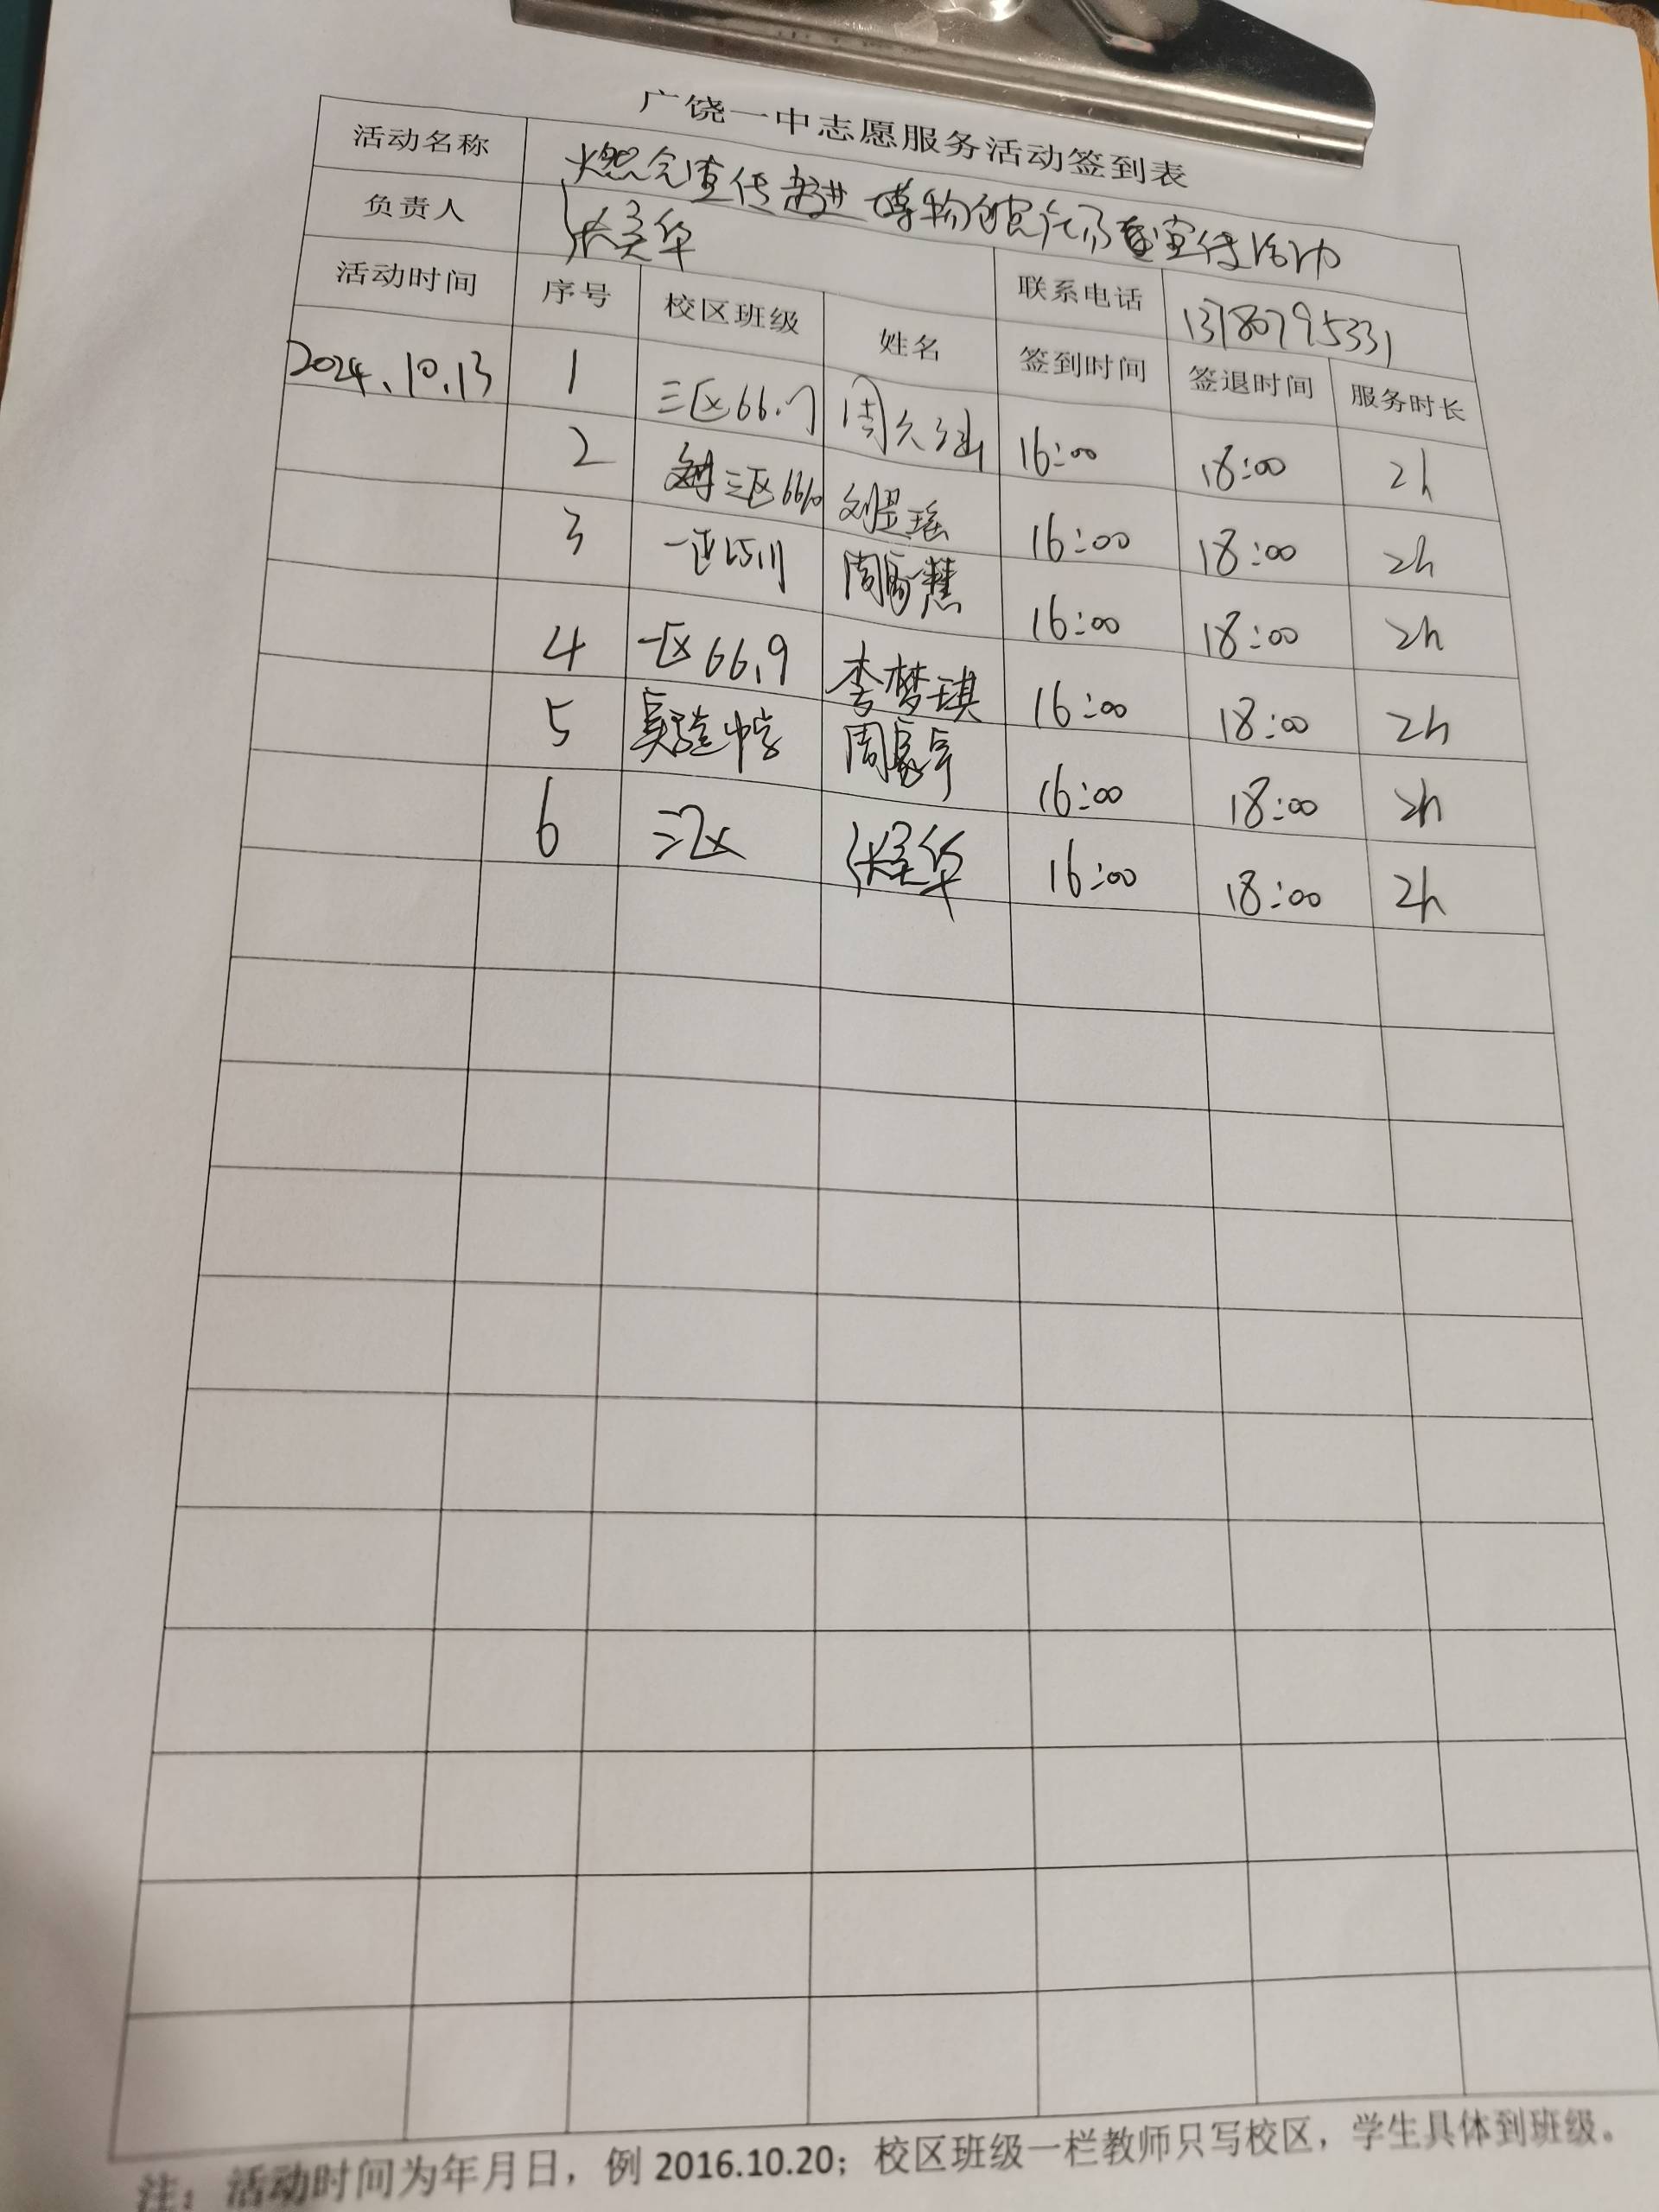 广饶一中志愿服务活动签到表
活动名称 宣传进博物馆 宣传活动
负责人 张美华 联系电话 13180795331
活动时间 序号 校区班级 姓名 签到时间 签退时间 服务时长
2024.10.13 1 三区66.7 周 16:00 18:00 2h
2 三区66.10 刘昱瑶 16:00 18:00 2h
3 一区 周 慧 16:00 18:00 2h
4 一区66.9 李梦琪 16:00 18:00 2h
5 实验中学 周 16:00 18:00 2h
6 三区 张美华 16:00 18:00 2h
注：活动时间为年月日，例 2016.10.20；校区班级一栏教师只写校区，学生具体到班级。